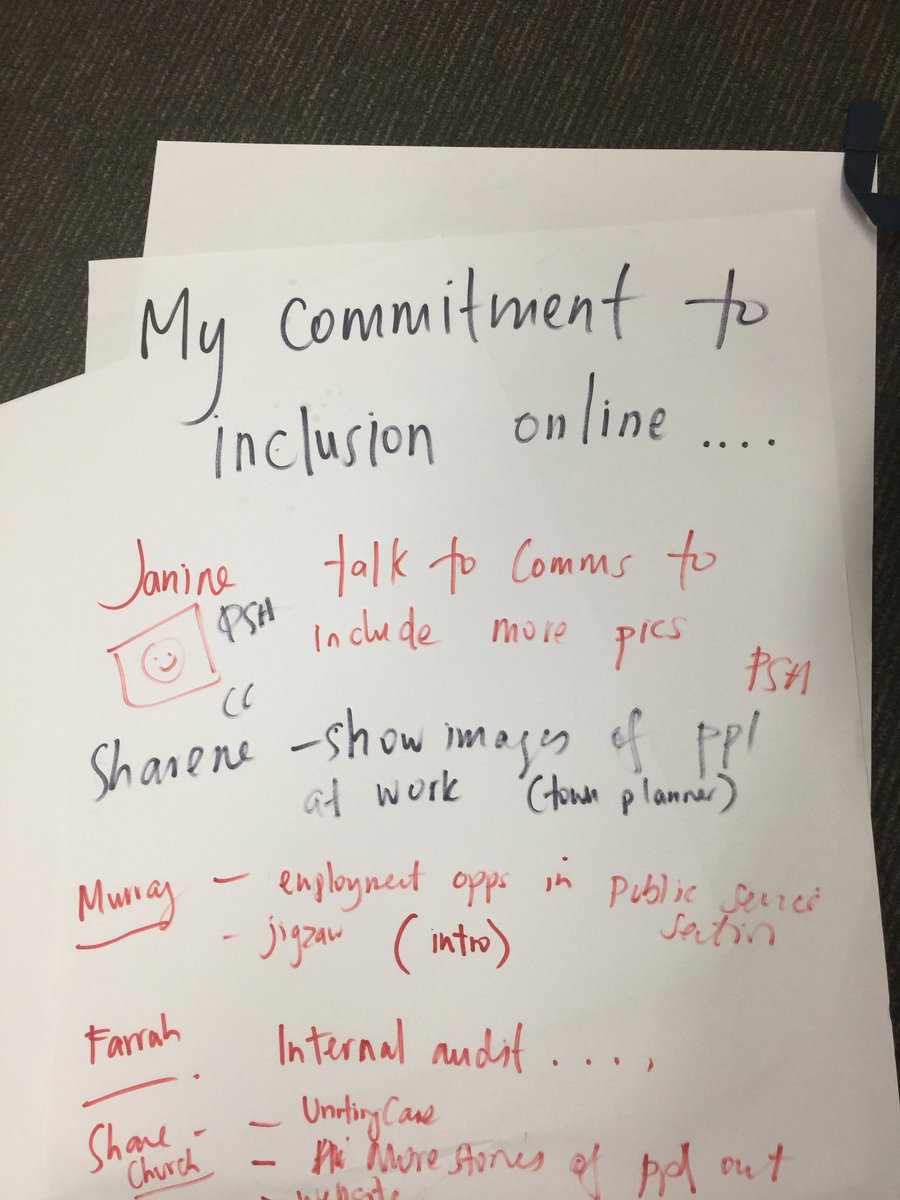 My commitment to
inclusion online ....
Janine talk to Comms to
PSH include more pics
PSH
CC
Sharene - show images of ppl
at work (town planner)
Murray - employment opps in Public
- jigzaw (intro)
Farrah Internal audit ....,
Shane - - Unitingcare
Church - More stories of ppl out
website